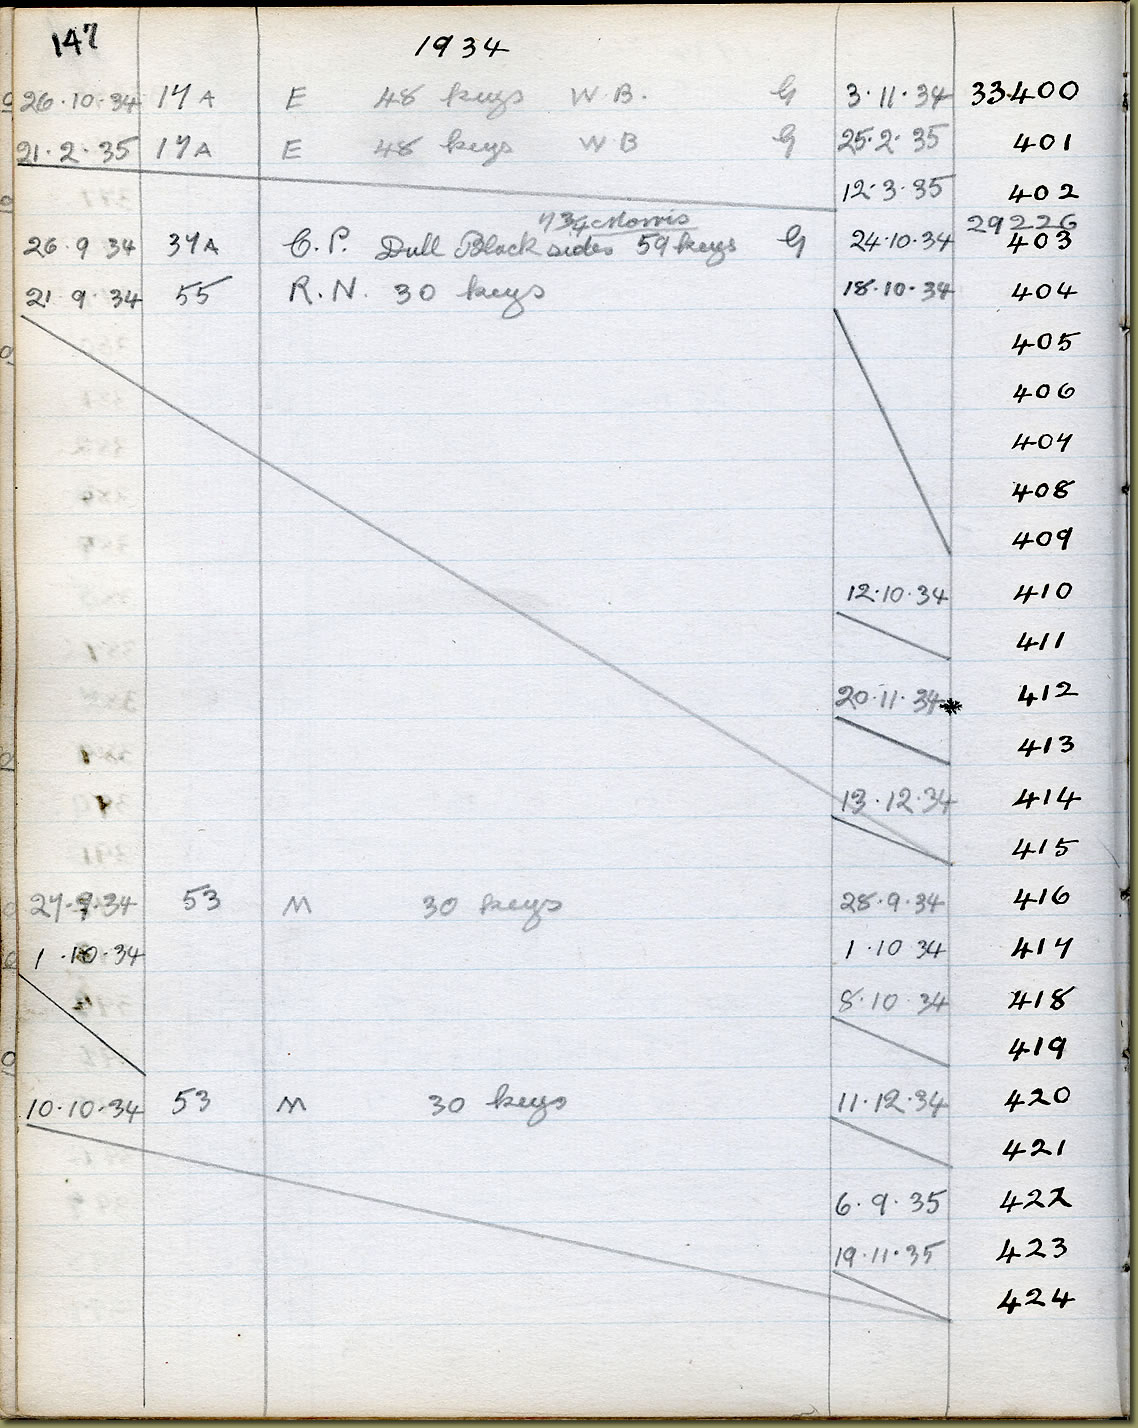 147 1934
26·10·34 17A E 48 keys W.B. G 3·11·34 33400
21·2·35 17A E 48 keys WB G 25·2·35 401
12·3·35 402
Morris 29226
26·9·34 37A C.P. Dull Black sides 59 keys G 24·10·34 403
21 9·34 55 R.N. 30 keys 18·10·34 404
405
406
407
408
409
12·10·34 410
411
20·11·34 * 412
413
13·12·34 414
415
27·9·34 53 M 30 keys 28·9·34 416
1·10·34 1·10 34 417
8·10 34 418
419
10·10·34 53 M 30 keys 11·12·34 420
421
6·9·35 422
19·11·35 423
424